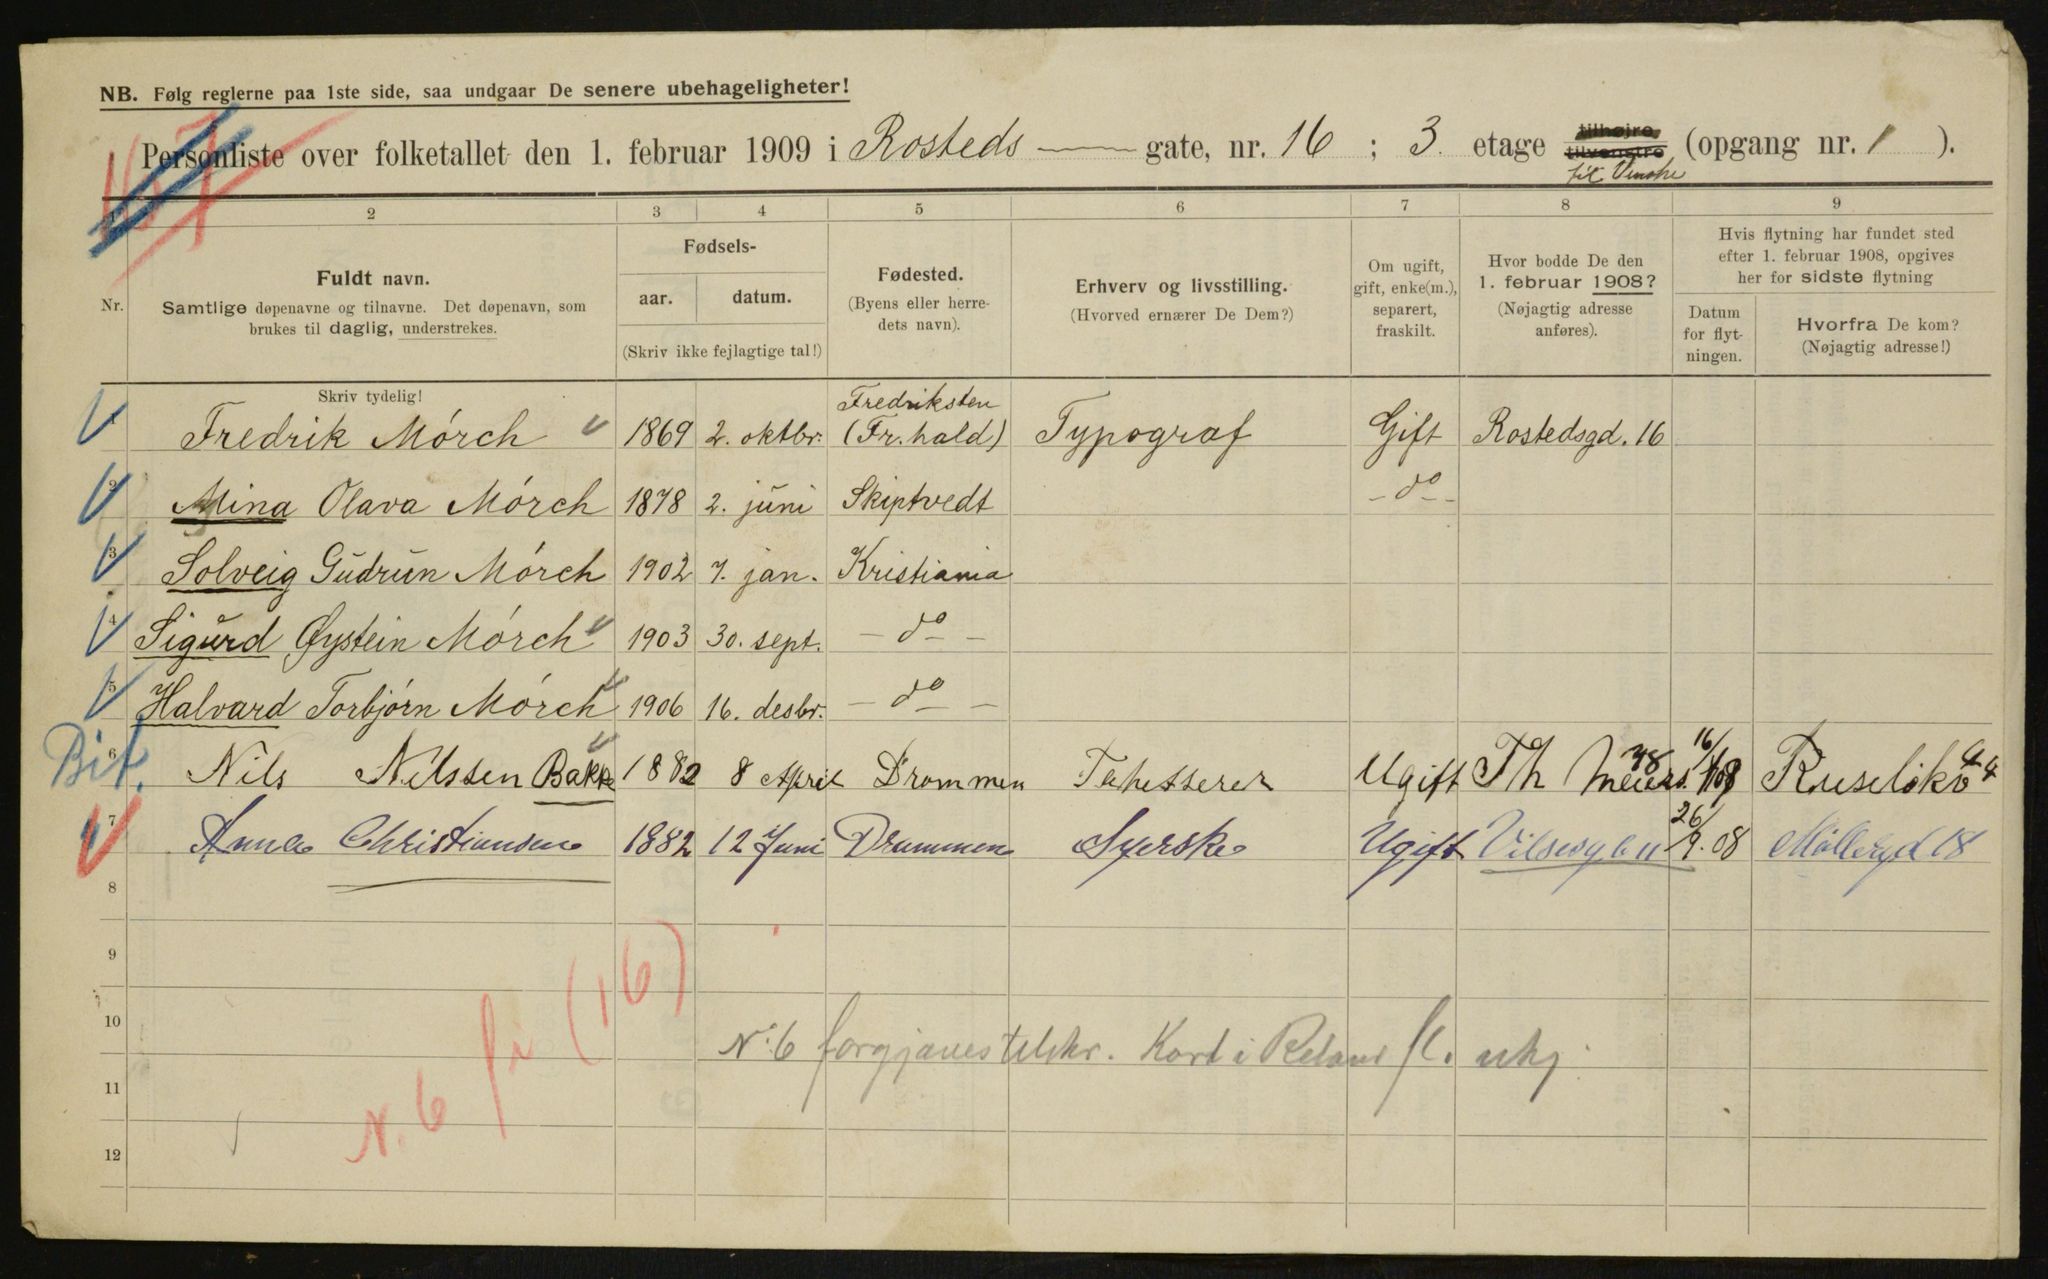 NB. Følg reglerne paa 1ste side, saa undgaar De senere ubehageligheter!
Personliste over folketallet den 1. februar 1909 i Rosteds gate, nr. 16 ; 3. etage tilhøjre tilvenstre (opgang nr. 1 ).
til Venstre
1 2 3 4 5 6 7 8 9
Nr.
Fuldt navn.
Samtlige døpenavne og tilnavne. Det døpenavn, som
brukes til daglig, understrekes.
Fødsels-
aar. datum.
(Skriv ikke fejlagtige tal!)
Fødested.
(Byens eller herre-
dets navn).
Erhverv og livsstilling.
(Hvorved ernærer De Dem?)
Om ugift,
gift, enke(m.),
separert,
fraskilt.
Hvor bodde De den
1. februar 1908?
(Nøjagtig adresse
anføres).
Hvis flytning har fundet sted
efter 1. februar 1908, opgives
her for sidste flytning
Datum
for flyt-
ningen.
Hvorfra De kom?
(Nøjagtig adresse!)
Skriv tydelig!
Fredrik Mórch 1869 2. oktbr. Fredriksten (Fr.hald) Typograf Gift Rostedsgd. 16
2 Mina Olava Mórch 1878 2. juni Skiptvedt - do -
3 Solveig Gudrun Mórch 1902 7. jan. Kristiania
4 Sigurd Øystein Mórch 1903 30. sept. - do -
5 Halvard Torbjórn Mórch 1906 16. desbr. - do -
Bit. 6 Nils Nilssen Bakke 1882 8 April Drammen Tapetserer Ugift Th Meiers 16/ 08 Ruselökv 44
7 Anna Christiansen 1882 12 Juni Drammen Syerske Ugift 26/9.08 Mölleryd 18
8
9
10
11
12
N. 6 fi (16)
N: 6 Kort i